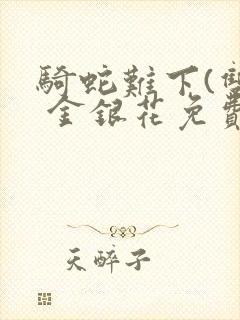 騎蛇難下(雙
金銀花免費
天醉子